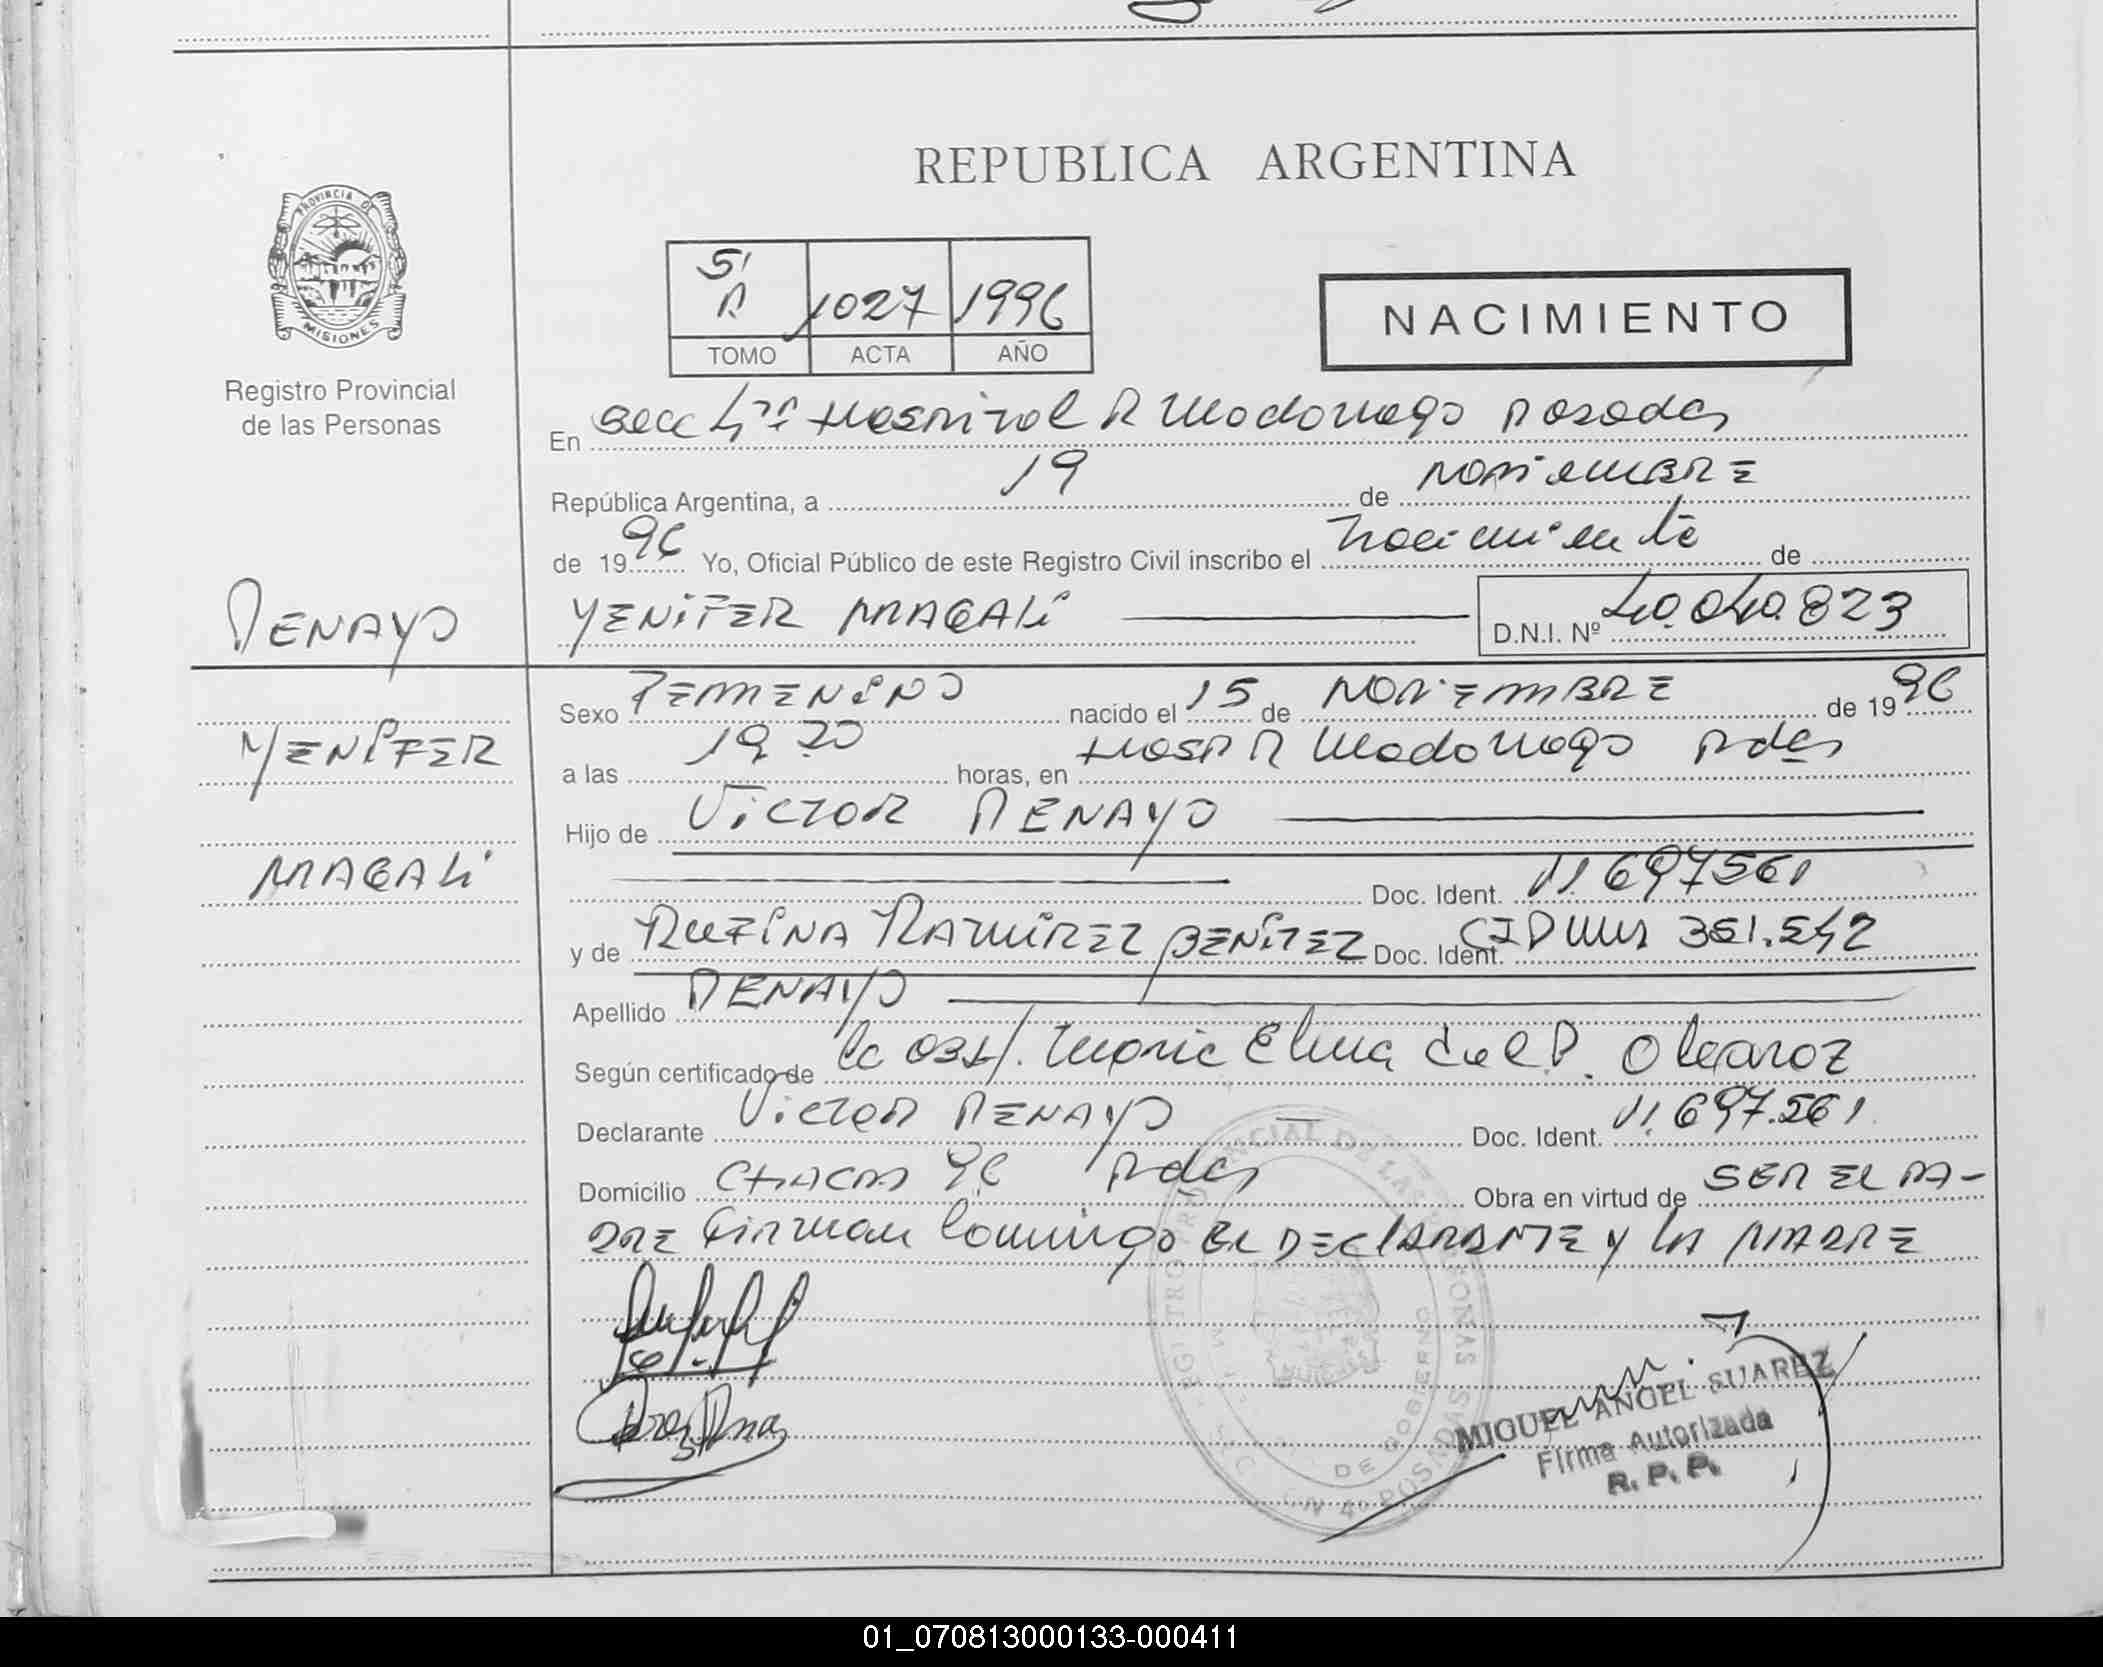 REPUBLICA ARGENTINA
PROVINCIA DE
MISIONES
Registro Provincial
de las Personas
5'
P 1027 1996
TOMO ACTA AÑO
NACIMIENTO
En Secc 4ta Hospital R Madariaga Posadas
República Argentina, a 19 de NOViEMBRE
de 1996 Yo, Oficial Público de este Registro Civil inscribo el Nacimiento de
YENiFER MAGALi D.N.I. Nº 40.040.823
PENAYO
YENiFER
MAGALi
Sexo FEMENiNO nacido el 15 de NOViEMBRE de 1996
a las 19 20 horas, en Hosp R Madariaga Pdas
Hijo de ViCTOR PENAYO
Doc. Ident. 11.697561
y de RUFiNA RAMiREZ BENiTEZ Doc. Ident. CIDMis 361.542
Apellido PENAYO
Según certificado de la obst/. Maria Elena del P. Alcaraz
Declarante ViCTOR PENAYO Doc. Ident. 11.697.561
Domicilio CHACRA 96 Pdas Obra en virtud de SER EL PA-
DRE Firman conmigo EL DECLARANTE y LA MADRE
MIGUEL ANGEL SUAREZ
Firma Autorizada
R. P. P.
01_070813000133-000411